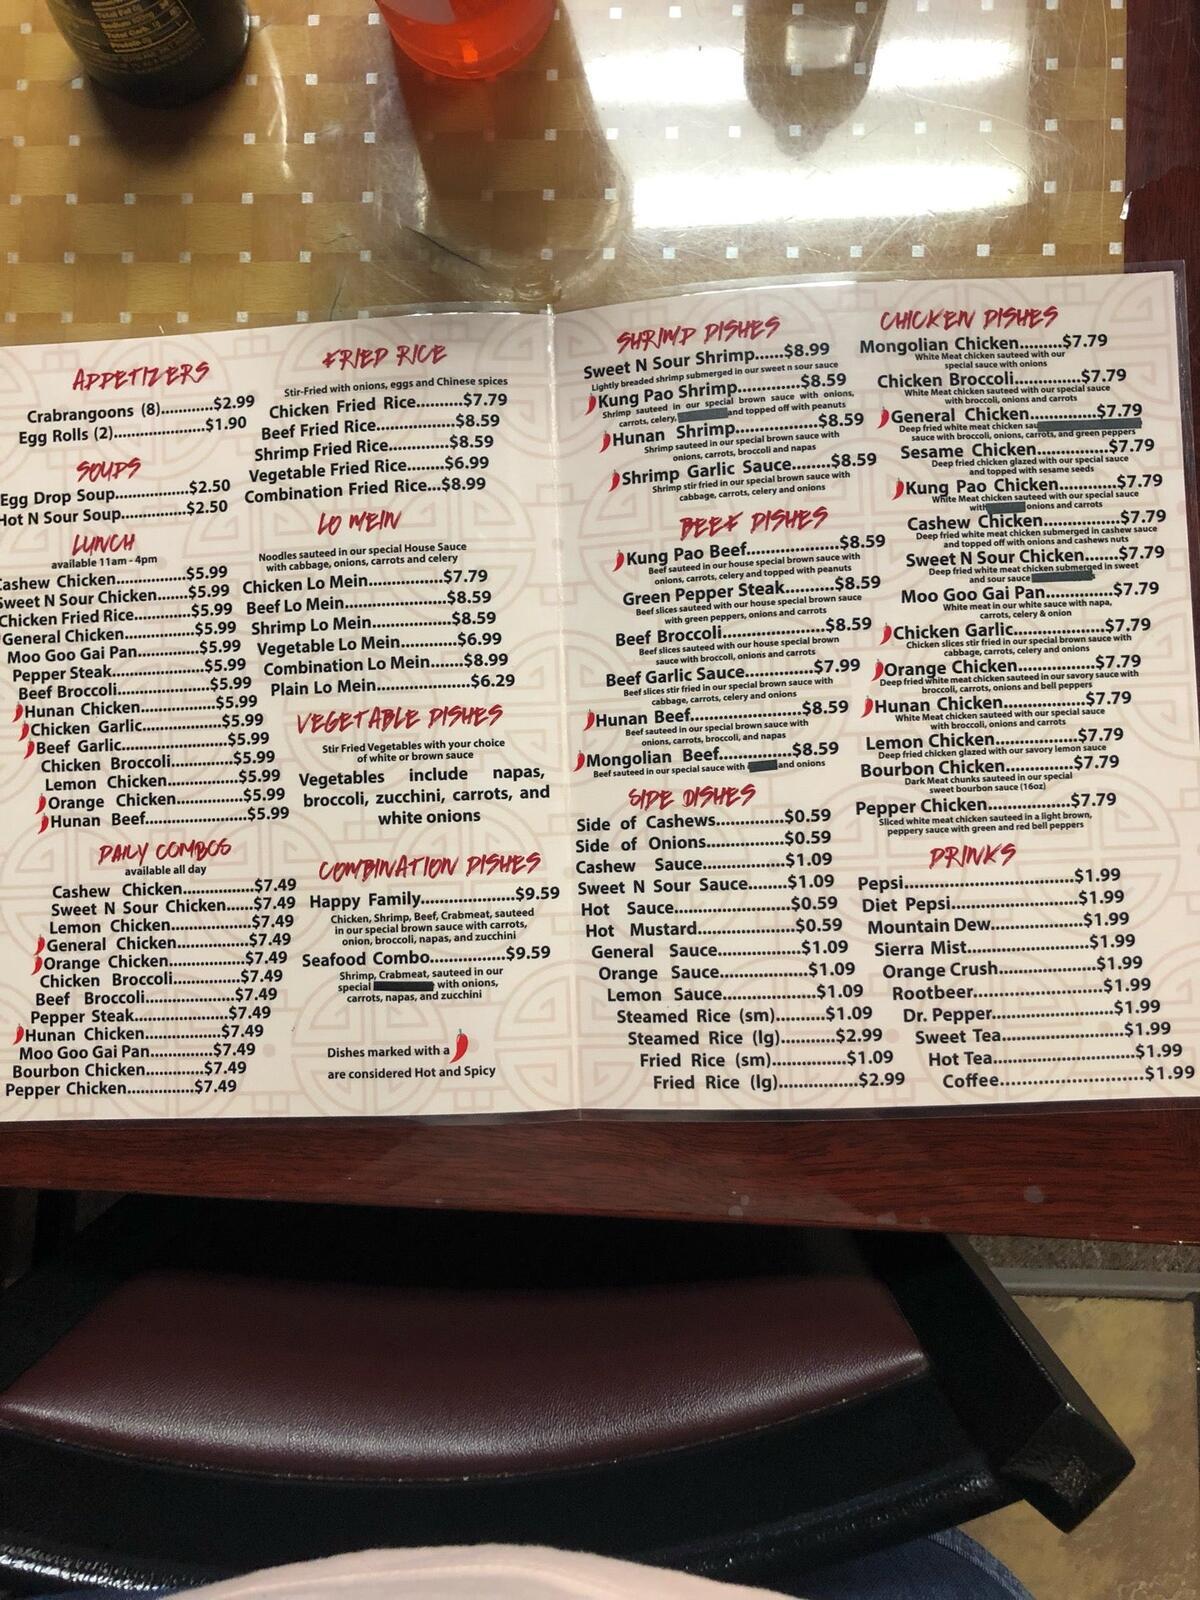 Total Fat 0g
APPETIZERS
Crabrangoons (8)............$2.99
Egg Rolls (2)......................$1.90
SOUPS
Egg Drop Soup.................$2.50
Hot N Sour Soup...............$2.50
LUNCH
available 11am - 4pm
Cashew Chicken................$5.99
Sweet N Sour Chicken.......$5.99
Chicken Fried Rice.............$5.99
General Chicken................$5.99
Moo Goo Gai Pan..............$5.99
Pepper Steak.....................$5.99
Beef Broccoli.....................$5.99
Hunan Chicken.................$5.99
Chicken Garlic...................$5.99
Beef Garlic.........................$5.99
Chicken Broccoli................$5.99
Lemon Chicken.................$5.99
Orange Chicken................$5.99
Hunan Beef.......................$5.99
DAILY COMBOS
available all day
Cashew Chicken................$7.49
Sweet N Sour Chicken.......$7.49
Lemon Chicken.................$7.49
General Chicken................$7.49
Orange Chicken................$7.49
Chicken Broccoli................$7.49
Beef Broccoli.....................$7.49
Pepper Steak.....................$7.49
Hunan Chicken.................$7.49
Moo Goo Gai Pan..............$7.49
Bourbon Chicken..............$7.49
Pepper Chicken.................$7.49
FRIED RICE
Stir-Fried with onions, eggs and Chinese spices
Chicken Fried Rice.........$7.79
Beef Fried Rice...............$8.59
Shrimp Fried Rice...........$8.59
Vegetable Fried Rice.......$6.99
Combination Fried Rice...$8.99
LO MEIN
Noodles sauteed in our special House Sauce
with cabbage, onions, carrots and celery
Chicken Lo Mein.............$7.79
Beef Lo Mein...................$8.59
Shrimp Lo Mein...............$8.59
Vegetable Lo Mein..........$6.99
Combination Lo Mein......$8.99
Plain Lo Mein..................$6.29
VEGETABLE DISHES
Stir Fried Vegetables with your choice
of white or brown sauce
Vegetables include napas,
broccoli, zucchini, carrots, and
white onions
COMBINATION DISHES
Happy Family.....................$9.59
Chicken, Shrimp, Beef, Crabmeat, sauteed
in our special brown sauce with carrots,
onion, broccoli, napas, and zucchini
Seafood Combo.................$9.59
Shrimp, Crabmeat, sauteed in our
special with onions,
carrots, napas, and zucchini
Dishes marked with a
are considered Hot and Spicy
SHRIMP DISHES
Sweet N Sour Shrimp......$8.99
Lightly breaded shrimp submerged in our sweet n sour sauce
Kung Pao Shrimp.............$8.59
Shrimp sauteed in our special brown sauce with onions,
carrots, celery, and topped off with peanuts
Hunan Shrimp..................$8.59
Shrimp sauteed in our special brown sauce with
onions, carrots, broccoli and napas
Shrimp Garlic Sauce........$8.59
Shrimp stir fried in our special brown sauce with
cabbage, carrots, celery and onions
BEEF DISHES
Kung Pao Beef..................$8.59
Beef sauteed in our house brown sauce with
onions, carrots, celery and topped with peanuts
Green Pepper Steak..........$8.59
Beef slices sauteed with our house special brown sauce
with green peppers, onions and carrots
Beef Broccoli.....................$8.59
Beef slices sauteed with our house special brown
sauce with broccoli, onions and carrots
Beef Garlic Sauce..............$7.99
Beef slices stir fried in our special brown sauce with
cabbage, carrots, celery and onions
Hunan Beef.......................$8.59
Beef sauteed in our special brown sauce with
onions, carrots, broccoli, and napas
Mongolian Beef................$8.59
Beef sauteed in our special sauce with and onions
SIDE DISHES
Side of Cashews................$0.59
Side of Onions...................$0.59
Cashew Sauce...................$1.09
Sweet N Sour Sauce..........$1.09
Hot Sauce..........................$0.59
Hot Mustard......................$0.59
General Sauce...................$1.09
Orange Sauce...................$1.09
Lemon Sauce....................$1.09
Steamed Rice (sm)............$1.09
Steamed Rice (lg)..............$2.99
Fried Rice (sm)..................$1.09
Fried Rice (lg)....................$2.99
CHICKEN DISHES
Mongolian Chicken..........$7.79
White Meat chicken sauteed with our
special sauce with onions
Chicken Broccoli...............$7.79
White Meat chicken sauteed with our special sauce
with broccoli, onions and carrots
General Chicken...............$7.79
Deep fried white meat chicken
sauce with broccoli, onions, carrots, and green peppers
Sesame Chicken................$7.79
Deep fried chicken glazed with our special sauce
and topped with sesame seeds
Kung Pao Chicken.............$7.79
White Meat chicken sauteed with our special sauce
with onions and carrots
Cashew Chicken................$7.79
Deep fried white meat chicken submerged in cashew sauce
and topped off with onions and cashews nuts
Sweet N Sour Chicken.......$7.79
Deep fried white meat chicken submerged in sweet
and sour sauce
Moo Goo Gai Pan..............$7.79
White meat in our white sauce with napa,
carrots, celery & onion
Chicken Garlic...................$7.79
Chicken slices stir fried in our special brown sauce with
cabbage, carrots, celery and onions
Orange Chicken................$7.79
Deep fried white meat chicken sauteed in our savory sauce with
broccoli, carrots, onions and bell peppers
Hunan Chicken.................$7.79
White Meat chicken sauteed with our special sauce
with broccoli, onions and carrots
Lemon Chicken.................$7.79
Deep fried chicken glazed with our savory lemon sauce
Bourbon Chicken..............$7.79
Dark Meat chunks sauteed in our special
sweet bourbon sauce (16oz)
Pepper Chicken.................$7.79
Sliced white meat chicken sauteed in a light brown,
peppery sauce with green and red bell peppers
DRINKS
Pepsi.................................$1.99
Diet Pepsi..........................$1.99
Mountain Dew..................$1.99
Sierra Mist.........................$1.99
Orange Crush....................$1.99
Rootbeer...........................$1.99
Dr. Pepper.........................$1.99
Sweet Tea..........................$1.99
Hot Tea..............................$1.99
Coffee................................$1.99